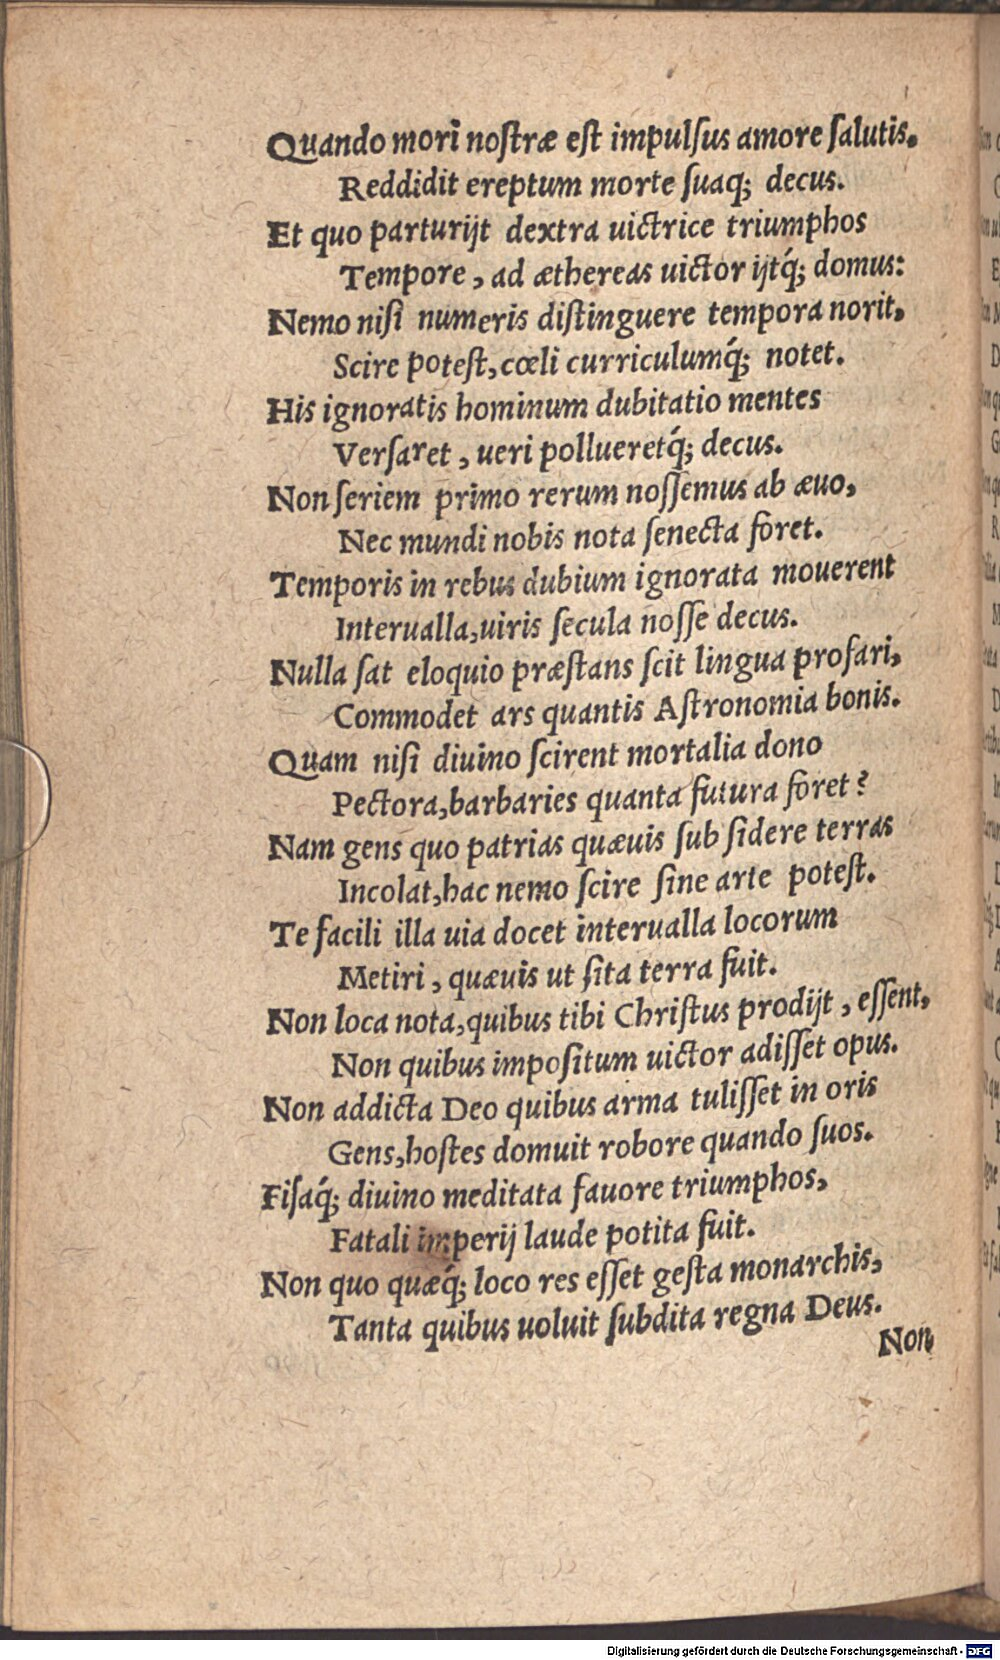 Quando mori nostræ est impulſus amore ſalutis.
Reddidit ereptum morte ſuaq; decus.
Et quo parturijt dextra uictrice triumphos
Tempore, ad æthereas uictor ijtq́; domus:
Nemo niſi numeris diſtinguere tempora norit,
Scire poteſt, cœli curriculumq́; notet.
His ignoratis hominum dubitatio mentes
Verſaret, ueri pollueretq́; decus.
Non ſeriem primo rerum noſſemus ab æuo,
Nec mundi nobis nota ſenecta foret.
Temporis in rebus dubium ignorata mouerent
Interualla, uiris ſecula noſſe decus.
Nulla ſat eloquio præſtans ſcit lingua profari,
Commodet ars quantis Aſtronomia bonis.
Quam niſi diuino ſcirent mortalia dono
Pectora, barbaries quanta futura foret?
Nam gens quo patrias quæuis ſub ſidere terras
Incolat, hac nemo ſcire ſine arte poteſt.
Te facili illa uia docet interualla locorum
Metiri, quæuis ut ſita terra fuit.
Non loca nota, quibus tibi Chriſtus prodijt, eſſent,
Non quibus impoſitum uictor adiſſet opus.
Non addicta Deo quibus arma tuliſſet in oris
Gens, hoſtes domuit robore quando ſuos.
Fiſaq́; diuino meditata fauore triumphos,
Fatali imperij laude potita fuit.
Non quo quæq́; loco res eſſet geſta monarchis,
Tanta quibus uoluit ſubdita regna Deus.
Non
Digitalisierung gefördert durch die Deutsche Forschungsgemeinschaft - DFG